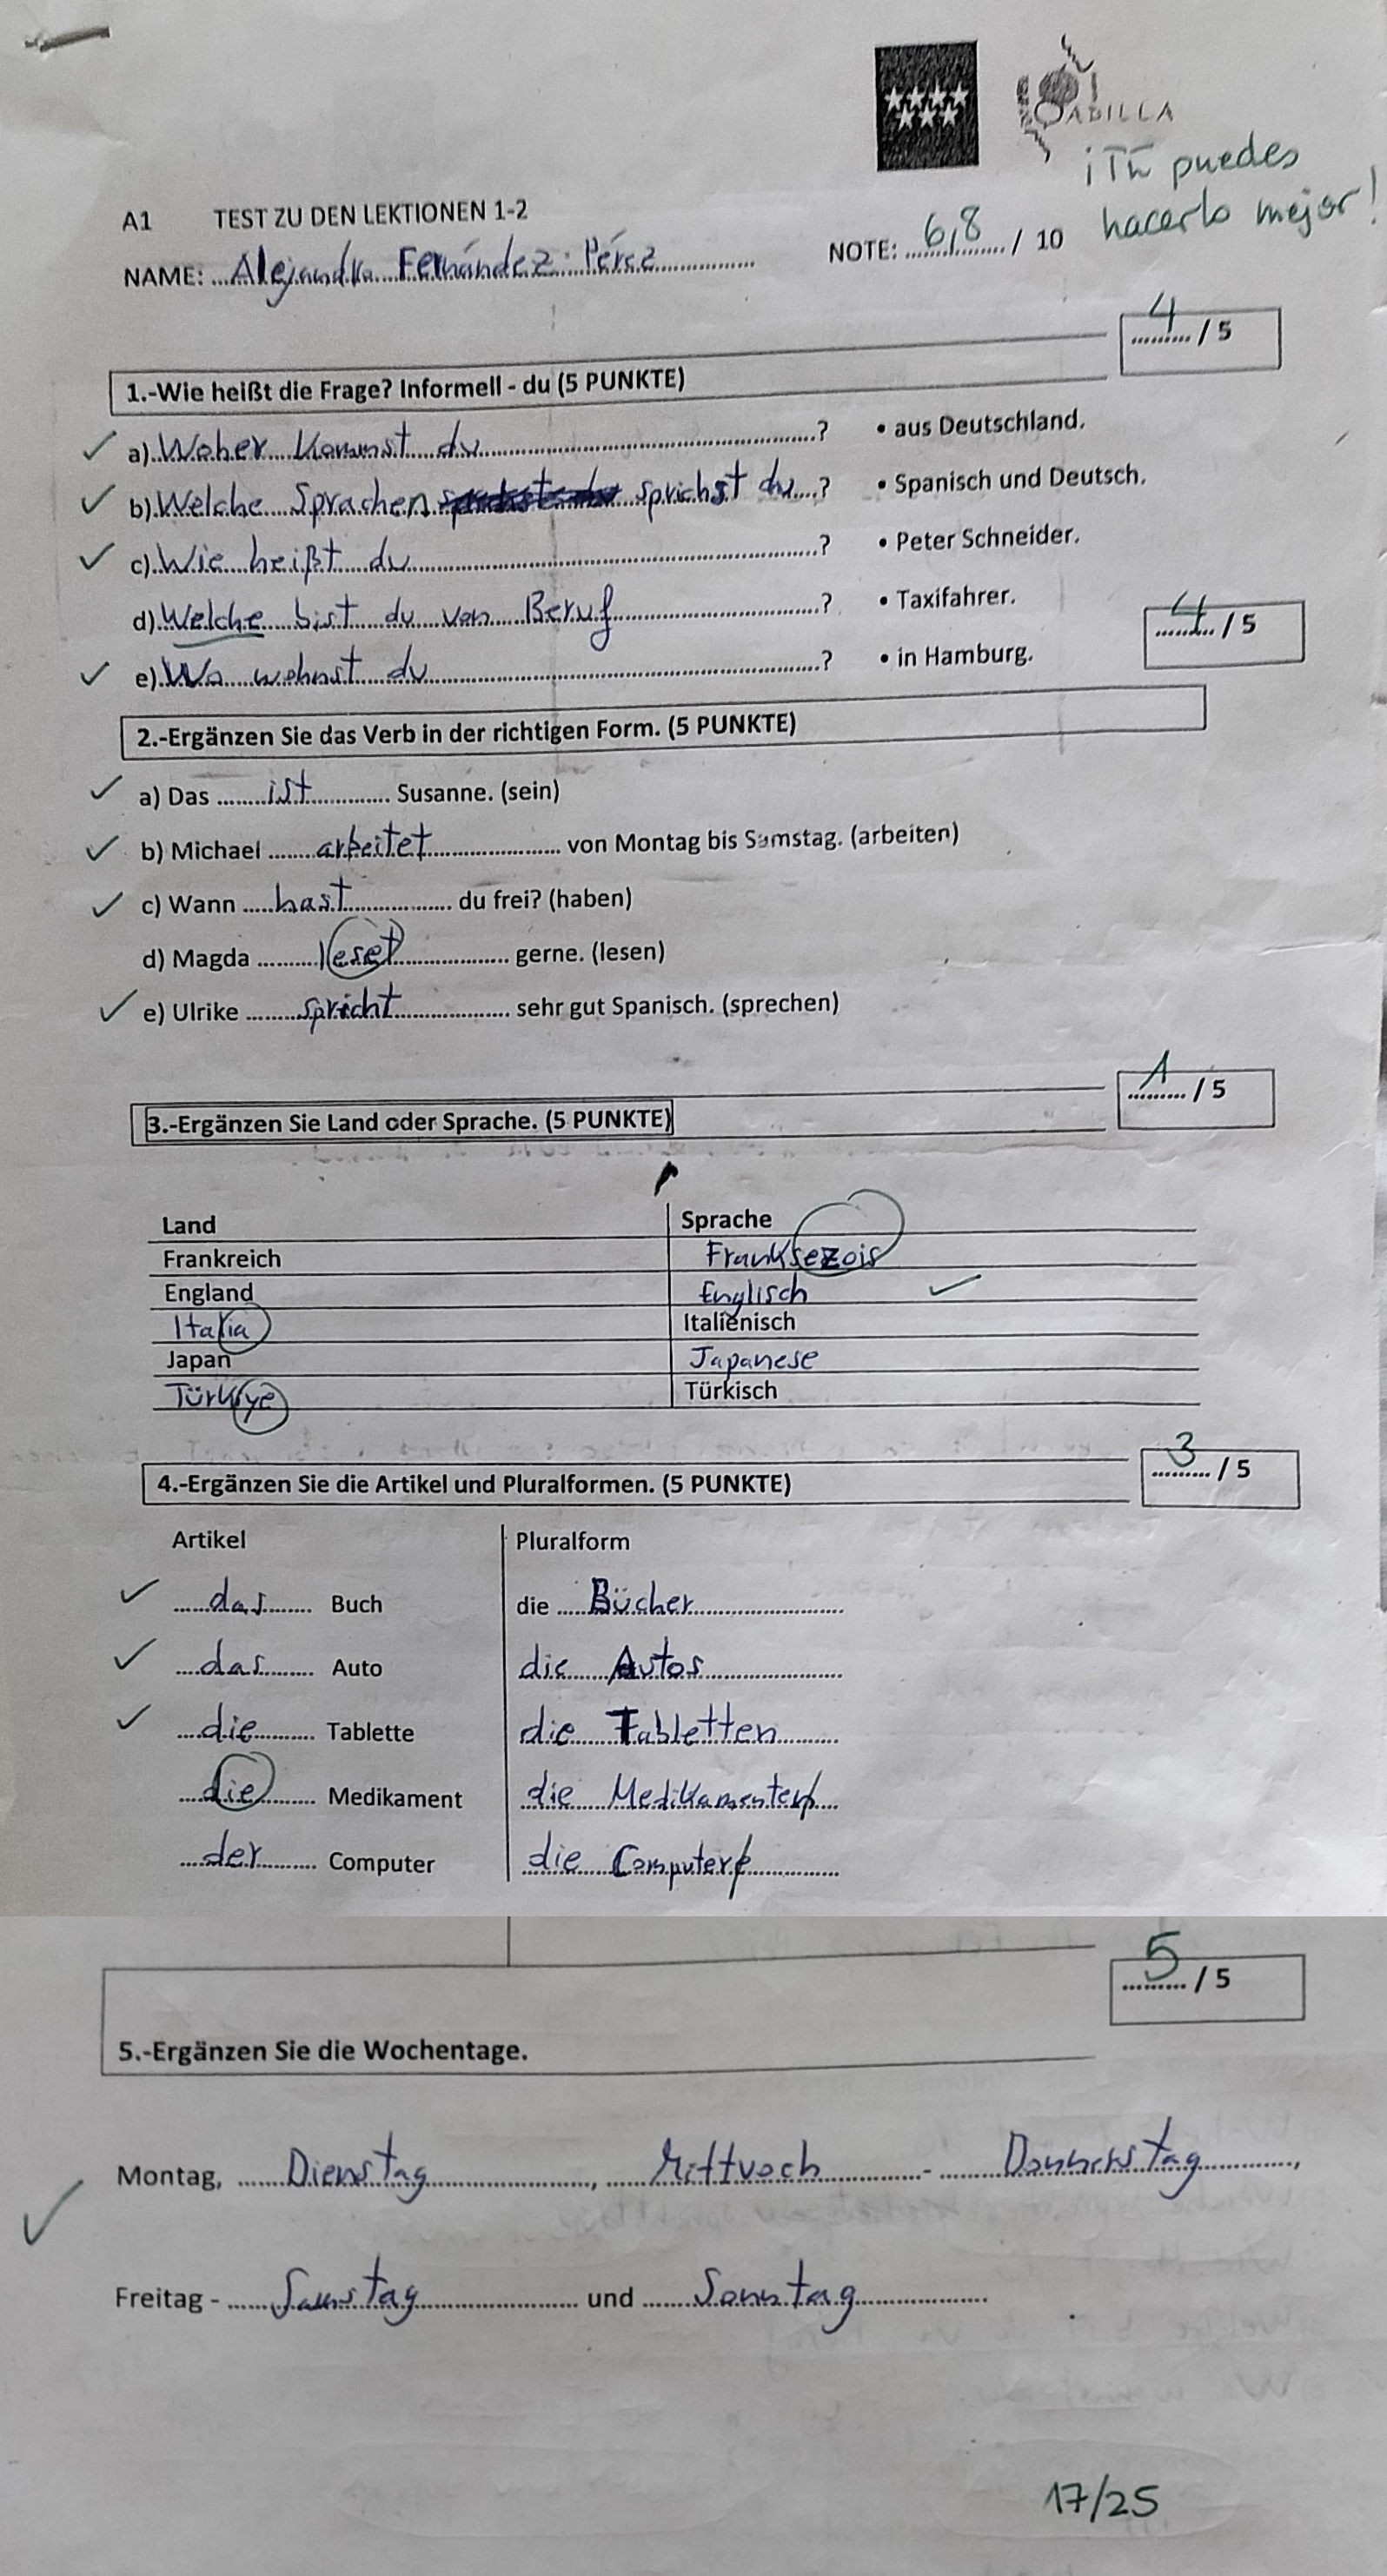 LA CABILLA
¡Tú puedes
hacerlo mejor!
A1 TEST ZU DEN LEKTIONEN 1-2
NAME: Alejandra Fernández Pérez NOTE: 6,8 / 10
4 / 5
1.-Wie heißt die Frage? Informell - du (5 PUNKTE)
a) Woher kommst du ? • aus Deutschland.
b) Welche Sprachen sprichst du ? • Spanisch und Deutsch.
c) Wie heißt du ? • Peter Schneider.
d) Welche bist du von Beruf ? • Taxifahrer.
4 / 5
e) Wo wohnst du ? • in Hamburg.
2.-Ergänzen Sie das Verb in der richtigen Form. (5 PUNKTE)
a) Das ist Susanne. (sein)
b) Michael arbeitet von Montag bis Samstag. (arbeiten)
c) Wann hast du frei? (haben)
d) Magda leset gerne. (lesen)
e) Ulrike spricht sehr gut Spanisch. (sprechen)
1 / 5
3.-Ergänzen Sie Land oder Sprache. (5 PUNKTE)
Land Sprache
Frankreich Franksezois
England Englisch
Italia Italienisch
Japan Japanese
Türkiye Türkisch
3 / 5
4.-Ergänzen Sie die Artikel und Pluralformen. (5 PUNKTE)
Artikel Pluralform
das Buch die Bücher
das Auto die Autos
die Tablette die Tabletten
die Medikament die Medikamenten
der Computer die Computer
5 / 5
5.-Ergänzen Sie die Wochentage.
Montag, Dienstag, Mittvoch - Donnerstag,
Freitag - Samstag und Sonntag
17/25